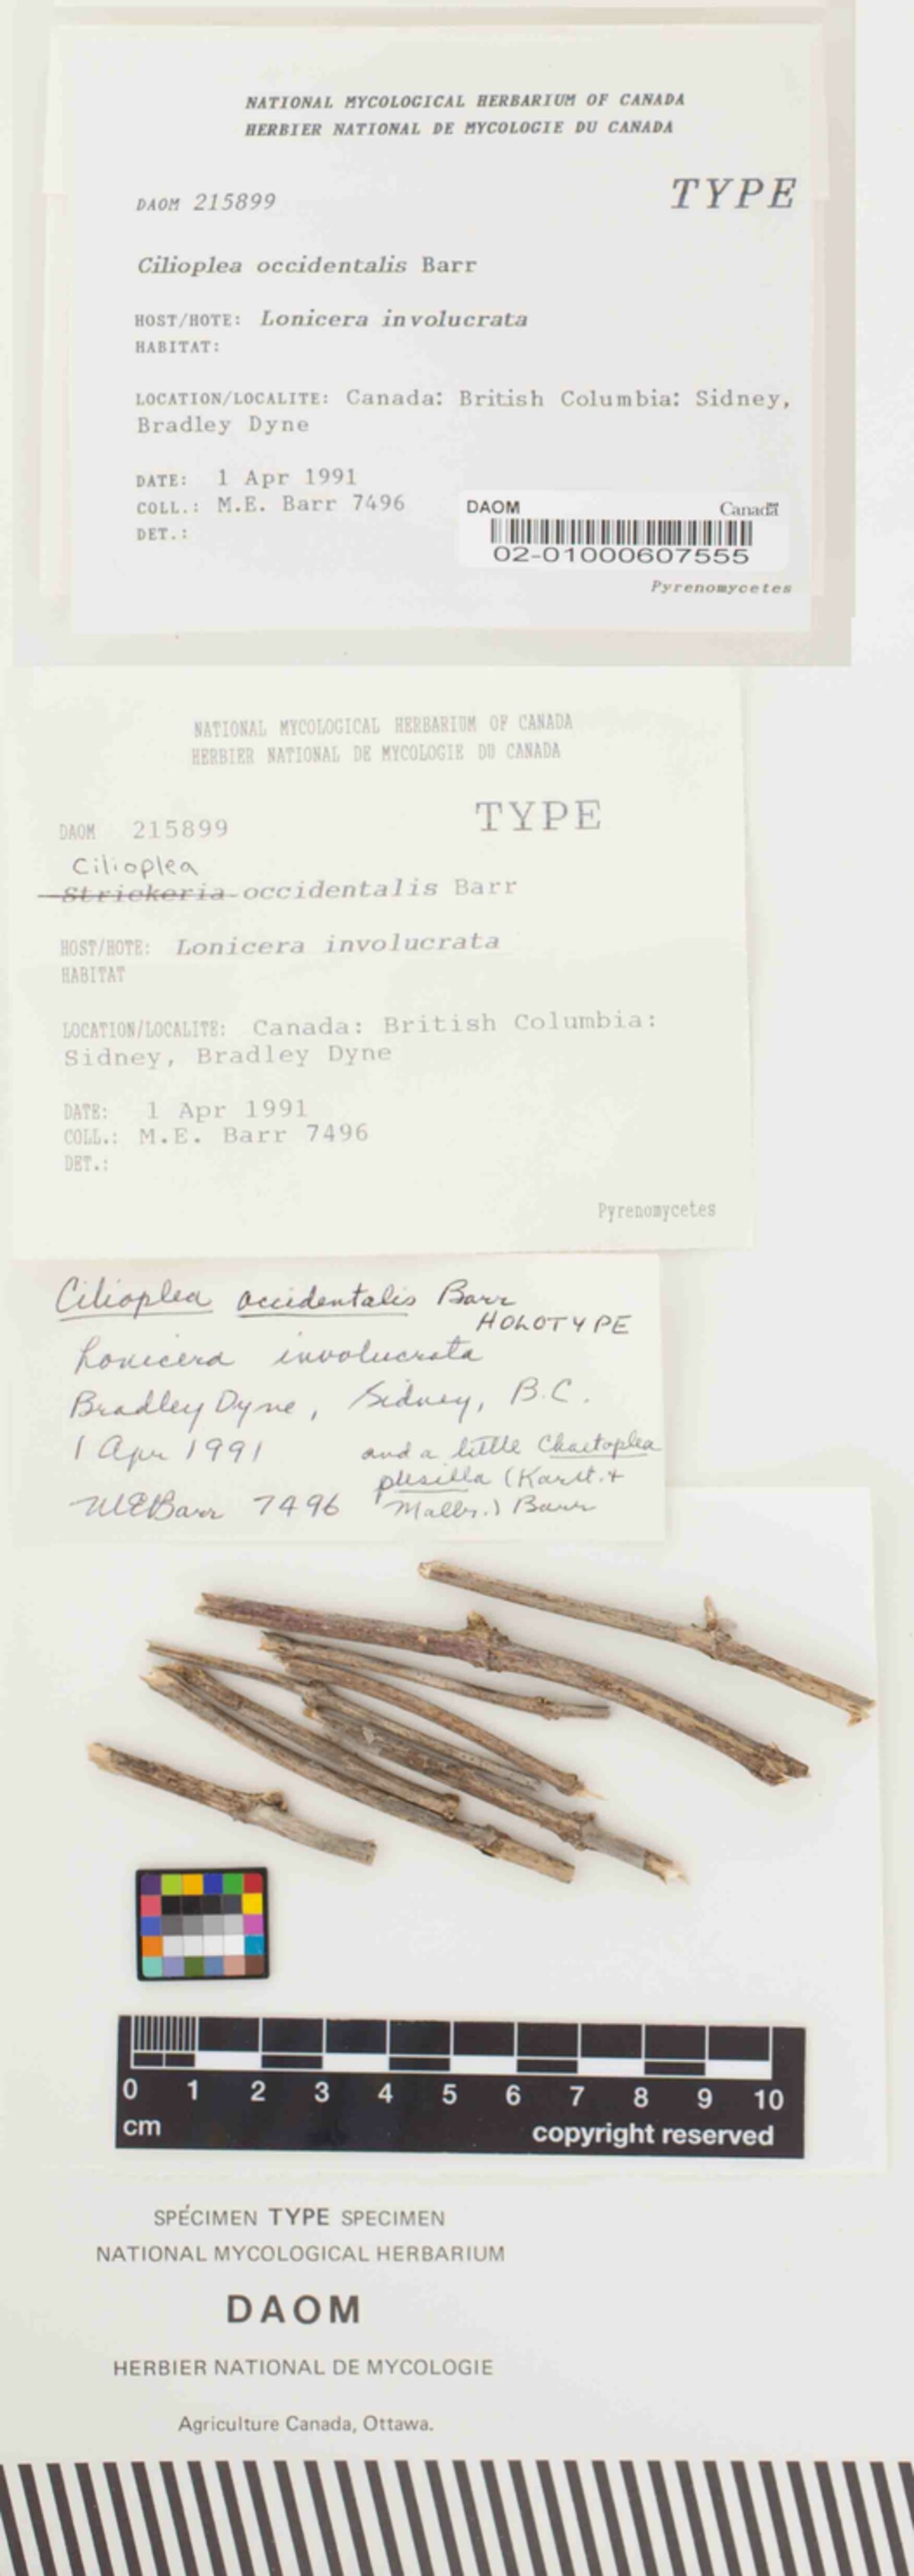 NATIONAL MYCOLOGICAL HERBARIUM OF CANADA
HERBIER NATIONAL DE MYCOLOGIE DU CANADA
DAOM 215899
TYPE
Cilioplea occidentalis Barr
HOST/HOTE: Lonicera involucrata
HABITAT:
LOCATION/LOCALITE: Canada: British Columbia: Sidney,
Bradley Dyne
DATE: 1 Apr 1991
COLL.: M.E. Barr 7496
DET.:
DAOM Canada
02-01000607555
Pyrenomycetes
NATIONAL MYCOLOGICAL HERBARIUM OF CANADA
HERBIER NATIONAL DE MYCOLOGIE DU CANADA
DAOM 215899
TYPE
Cilioplea
Strickeria occidentalis Barr
HOST/HOTE: Lonicera involucrata
HABITAT
LOCATION/LOCALITE: Canada: British Columbia:
Sidney, Bradley Dyne
DATE: 1 Apr 1991
COLL.: M.E. Barr 7496
DET.:
Pyrenomycetes
Cilioplea occidentalis Barr
HOLOTYPE
Lonicera involucrata
Bradley Dyne, Sidney, B.C.
1 Apr 1991
and a little Chaetoplea
(Karst. +
MEBarr 7496
Malbr.) Barr
0 1 2 3 4 5 6 7 8 9 10
cm copyright reserved
SPÉCIMEN TYPE SPECIMEN
NATIONAL MYCOLOGICAL HERBARIUM
DAOM
HERBIER NATIONAL DE MYCOLOGIE
Agriculture Canada, Ottawa.